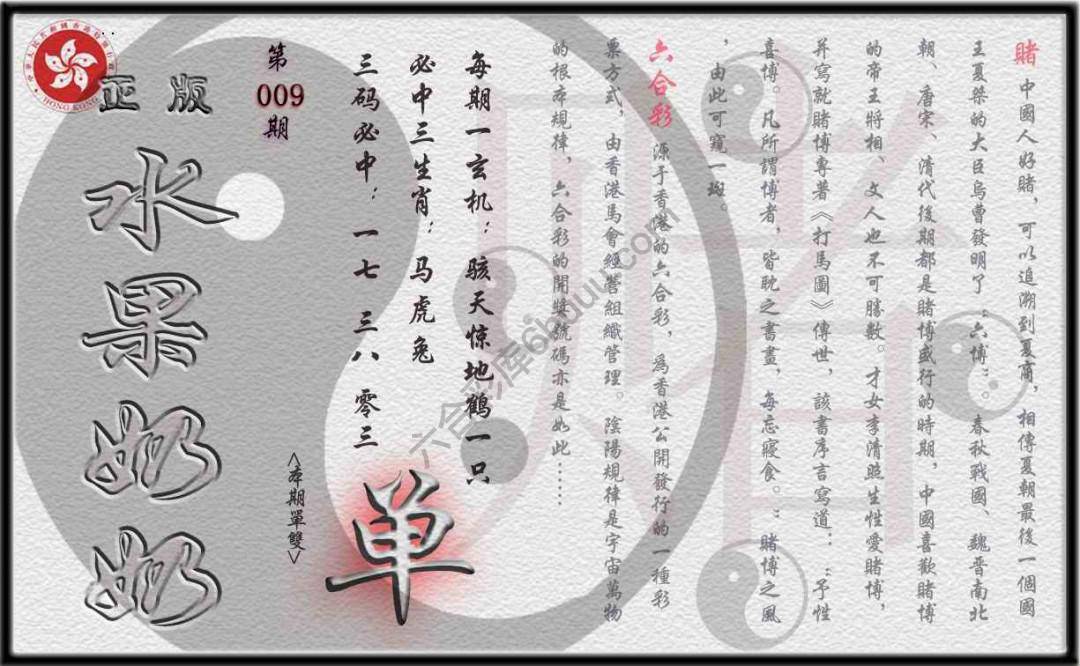 賭 中國人好賭，可以追溯到夏商，相傳夏朝最後一個國
王夏桀的大臣烏曹發明了：六博：。春秋戰國、魏晉南北
朝、唐宋、清代後期都是賭博盛行的時期，中國喜歡賭博
的帝王將相、文人也不可勝數。才女李清照生性愛賭博，
并寫就賭博專著《打馬圖》傳世，該書序言寫道：：予性
喜博。凡所謂博者，皆耽之晝晝，每忘寢食。：賭博之風
，由此可窺一斑。
六合彩 源于香港的六合彩，為香港公開發行的一種彩
票方式，由香港馬會經營組織管理。陰陽規律是宇宙萬物
的根本規律，六合彩的開獎號碼亦是如此……
每期一玄机：骇天惊地鹤一只
必中三生肖：马虎兔
三码必中：一七 三八 零三
单
<本期單雙>
第
009
期
正版
水果奶奶
HONG KONG
六合彩库6huuu.com
賭